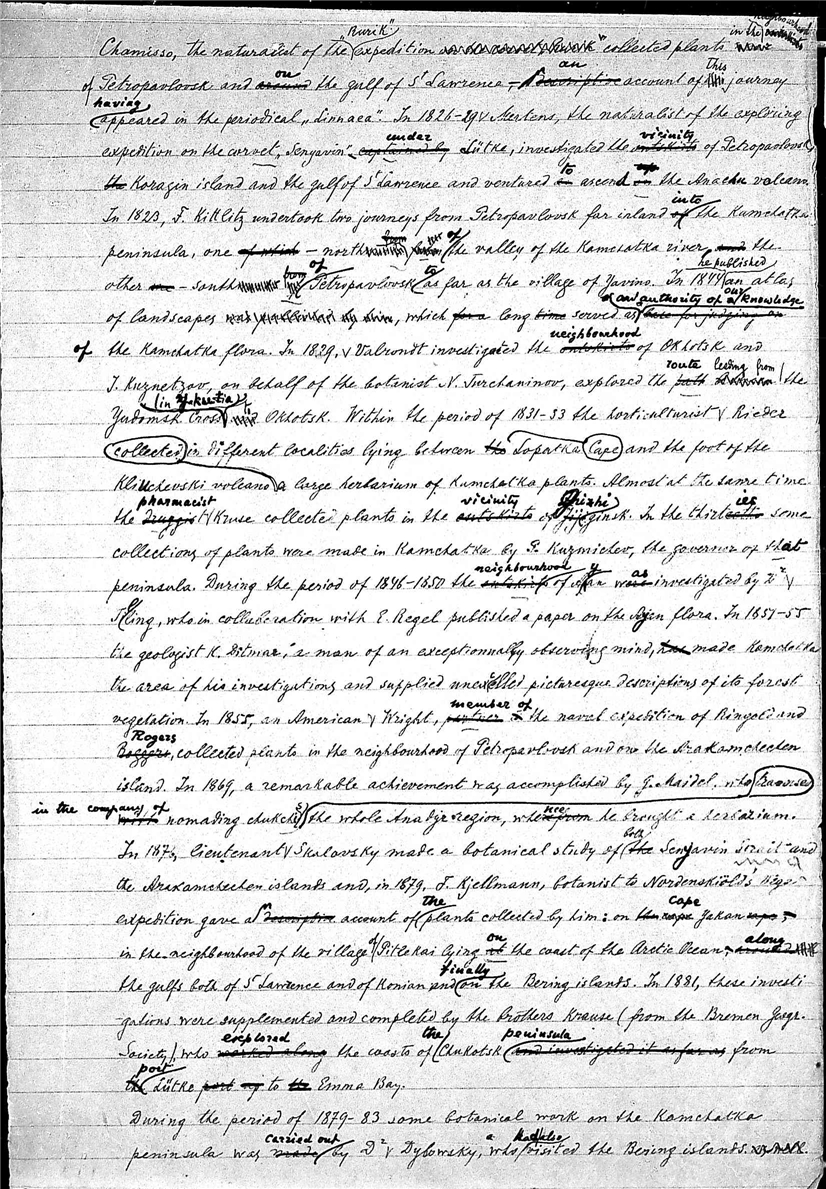 Chamisso, the naturalist of the "Rurik" expedition collected plants in the neighbourhood
of Petropavlovsk and on the gulf of St Lawrence, – an account of this journey
having appeared in the periodical „Linnaea". In 1826-29 v Mertens, the naturalist of the exploring
expedition on the corvet, Senyavin" under Lütke, investigated the vicinity of Petropavlovsk,
the Koragin island and the gulf of St Lawrence and ventured to ascend up the Anachu volcano.
In 1823, F. Kittlitz undertook two journeys from Petropavlovsk far inland into the Kamchatka
peninsula, one – north from of the valley of the Kamchatka river, the
other – south from of Petropavlovsk to as far as the village of Yavino. In 1844 he published an atlas
of landscapes, which long served as an authority of our knowledge
of the Kamchatka flora. In 1829, v Valrondt investigated the neighbourhood of Okhotsk and
I. Kuznetzov, on behalf of the botanist N. Turchaninov, explored the route leading from the
Yudomsk Cross (in Yakutia) Okhotsk. Within the period of 1831-33 the horticulturist v Rieder
collected in different localities lying between Lopatka Cape and the foot of the
Kliuchevski volcano a large herbarium of Kamchatka plants. Almost at the same time
the pharmacist v Kruse collected plants in the vicinity of Ghizhiginsk. In the thirties some
collections of plants were made in Kamchatka by P. Kuzmichev, the governor of that
peninsula. During the period of 1846-1850 the neighbourhood of Ayan was investigated by Dr v
Tiling, who in collaboration with E. Regel published a paper on the Ajan flora. In 1851-55
the geologist K. Ditmar, a man of an exceptionnally observing mind, made Kamchatka
the area of his investigations and supplied unexcelled picturesque descriptions of its forest
vegetation. In 1855, an American v Wright, member of the naval expedition of Ringold and
Rogers, collected plants in the neighbourhood of Petropavlovsk and on the Arakamchechen
island. In 1869, a remarkable achievement was accomplished by G. Maidel, who traversed
in the company of nomading chukchis the whole Anadyr region, whence he brought a herbarium.
In 1876, lieutenant v Skalovsky made a botanical study of both the Senyavin Strait and
the Arakamchechen islands and, in 1879, F. Kjellmann, botanist to Nordenskiöld's Vega
expedition gave an account of the plants collected by him: on the Cape Jakan,
in the neighbourhood of the village of Pitlekai lying on the coast of the Arctic Ocean, along
the gulfs both of St Lawrence and of Konian and finally on the Bering islands. In 1881, these investi
gations were supplemented and completed by the brothers Krause (from the Bremen Geogr.
Society), who explored the coasts of the Chukotsk peninsula from
port Lütke to Emma Bay.
During the period of 1879-83 some botanical work on the Kamchatka
peninsula was carried out by Dr v Dybowsky, who had also visited the Bering islands.